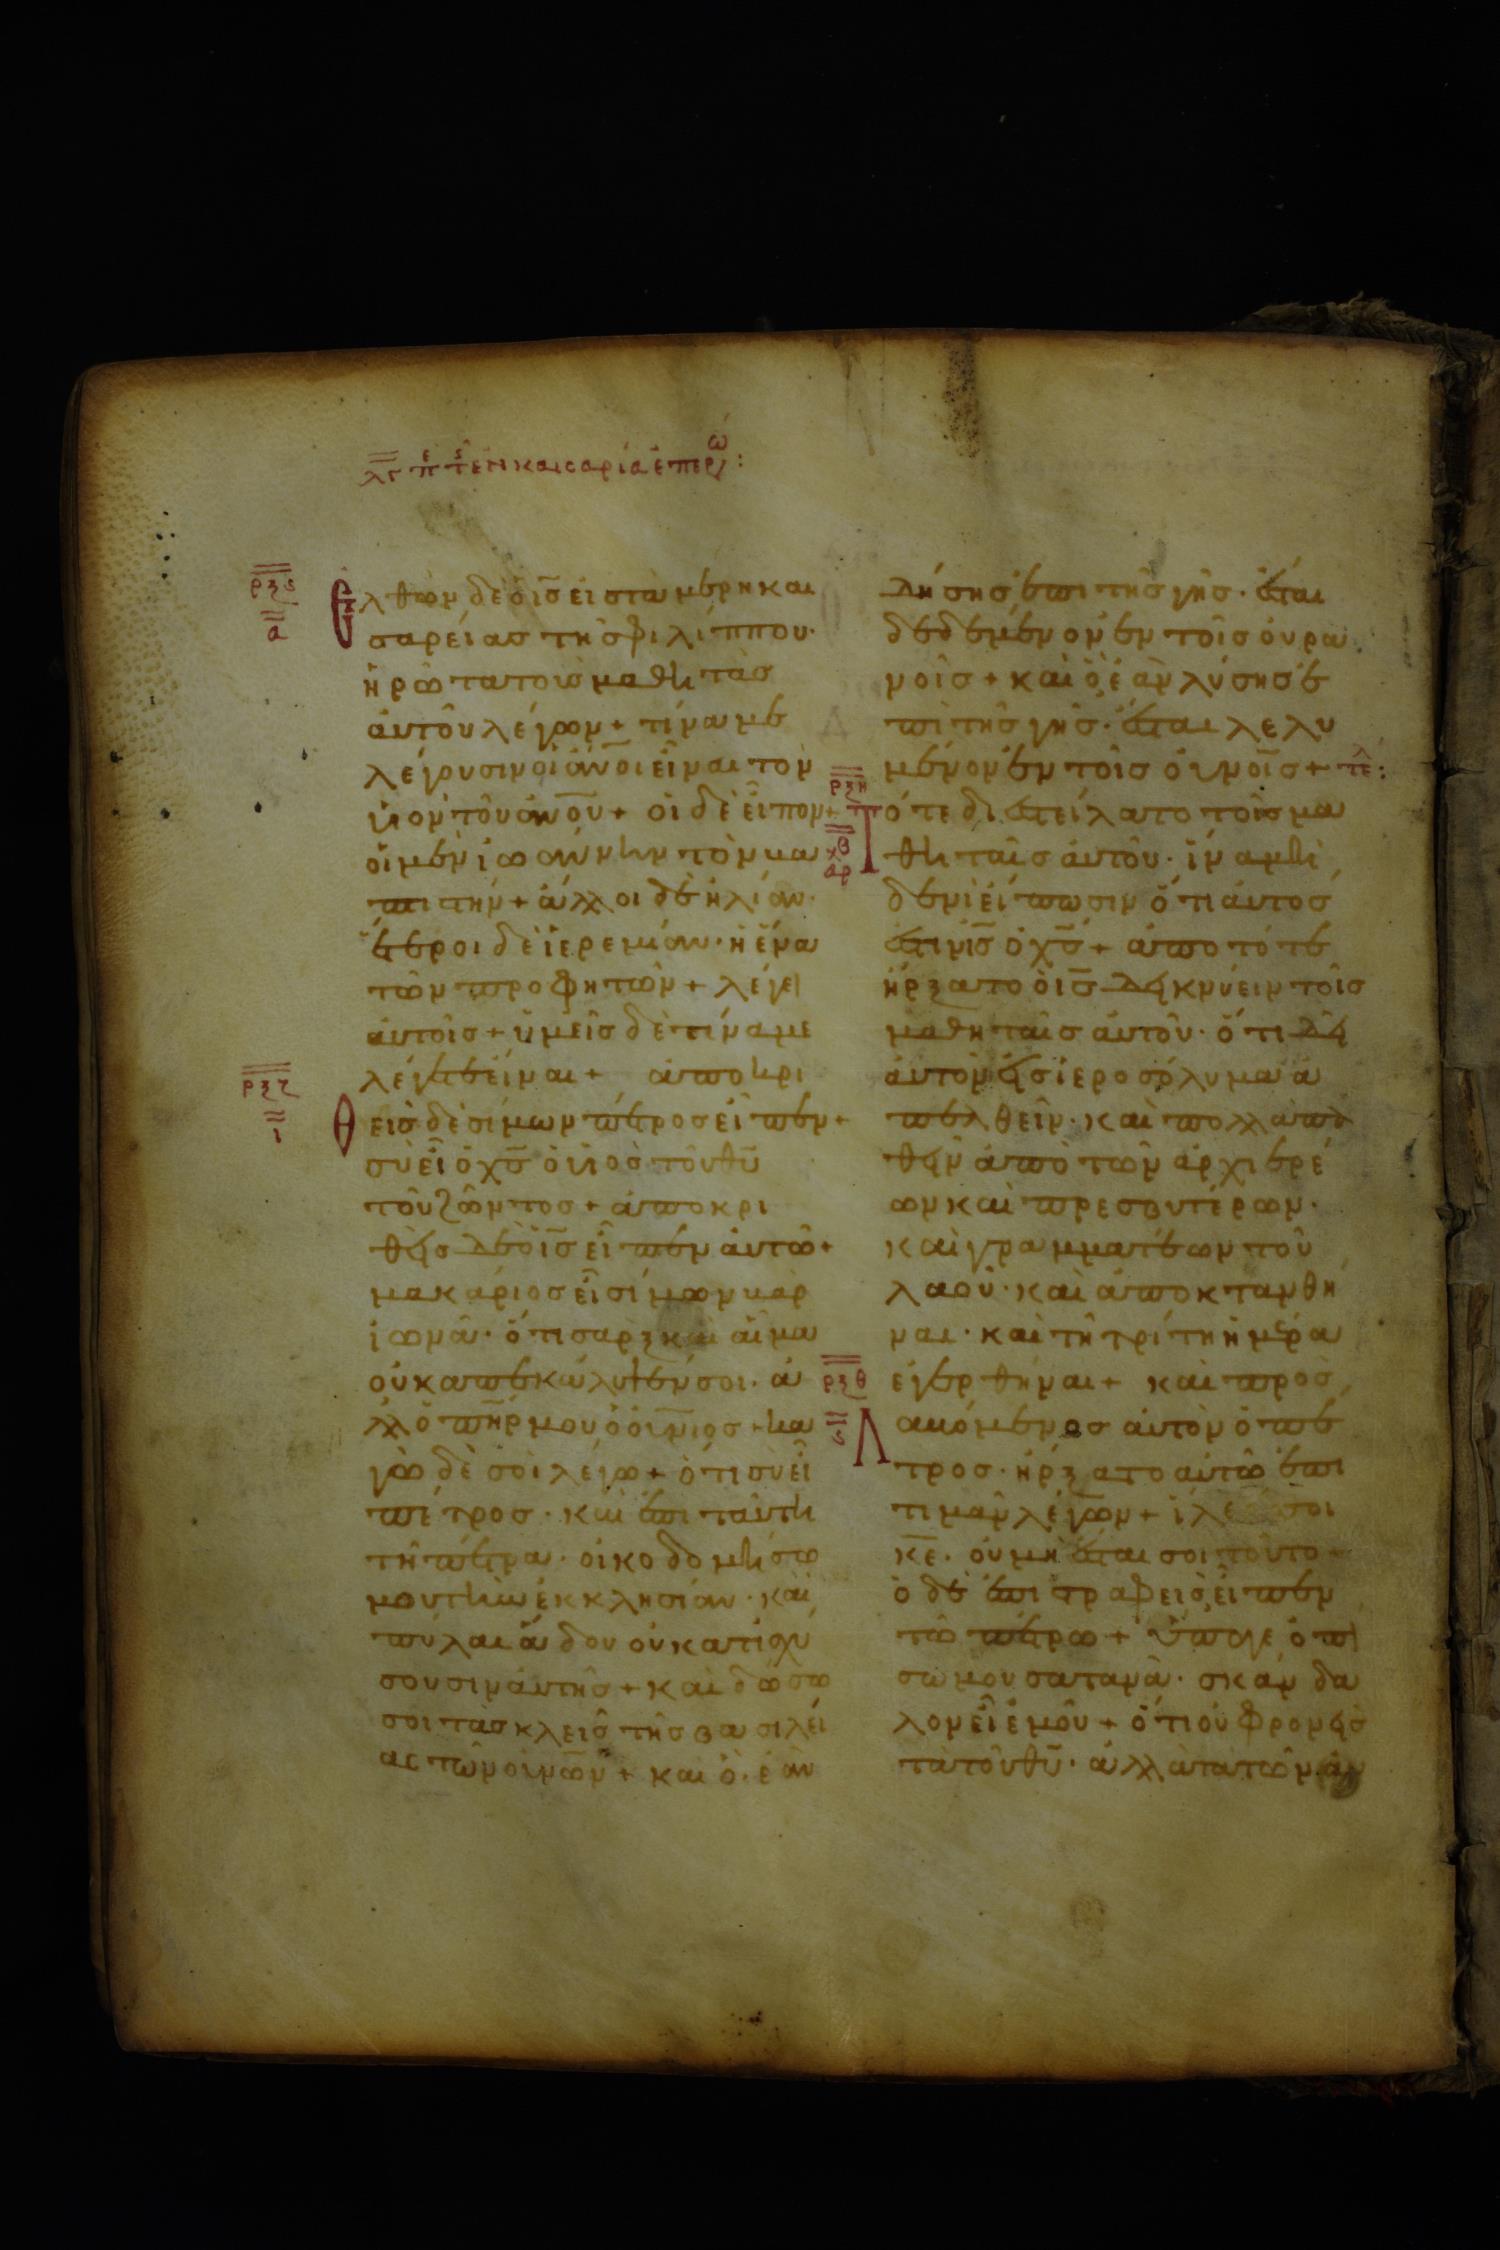 λγ π̅ε τ̅ς ἐν καισαρία ἐπερω:
ρξϛ
α
Ελθὼν δὲ ὁ ι̅ς̅ εἰς τὰ μέρη και
σαρείας τῆς φιλίππου·
ἠρώτα τοὺς μαθητὰς
αὐτοῦ λέγων + τίνα με
λέγουσιν οἱ ἄν̅ο̅ι εἶναι τὸν
υἱὸν τοῦ ἀν̅ο̅υ + οἱ δὲ εἶπον +
οἱ μὲν ἰωάννην τὸν βα
πτιστήν + ἄλλοι δὲ ἠλίαν·
ἕτεροι δὲ ἱερεμίαν· ἢ ἕνα
τῶν προφητῶν + λέγει
αὐτοῖς + ὑμεῖς δὲ τίνα με
λέγετε εἶναι + ἀποκρι
ρξζ
ι
θεὶς δὲ σίμων πέτρος εἶπεν +
σὺ εἶ ὁ χ̅ς̅ ὁ υἱὸς τοῦ θ̅υ̅
τοῦ ζῶντος + ἀποκρι
θεὶς δὲ ὁ ι̅ς̅ εἶπεν αὐτῶ +
μακάριος εἶ σίμων βὰρ
ἰωνᾶ· ὅτι σὰρξ καὶ αἷμα
οὐκ ἀπεκάλυψέν σοι· ἀ
λλ ὁ π̅η̅ρ̅ μου ὁ οὐ̅ν̅ιος + κα
γὼ δὲ σοὶ λέγω + ὅτι σὺ εἶ
πέτρος· καὶ ἐπὶ ταύτη
τῆ πέτρα· οἰκοδομήσω
μου τὴν ἐκκλησίαν· καὶ
πύλαι ἅδου οὐ κατισχύ
σουσιν αὐτῆς + καὶ δώσω
σοι τὰς κλεῖς τῆς βασιλεί
ας τῶν οὐ̅ν̅ῶν + καὶ ὃ· ἐὰν
λήσης ἐπὶ τῆς γῆς· ἔσται
δεδεμένον ἐν τοῖς οὐρα
νοῖς + καὶ ὃ ἐὰν λύσης ἐ
πὶ τῆς γῆς· ἔσται λελυ
μένον ἐν τοῖς οὐ̅ν̅οῖς + τε λ:
ρξη
β
αρ
Τότε διεστείλατο τοῖς μα
θηταῖς αὐτοῦ· ἵνα μὴ
δενὶ εἴπωσιν ὅτι αὐτὸς
ἐστιν ι̅ς̅ ὁ χ̅ς̅ + ἀπὸ τότε
ἤρξατο ὁ ι̅ς̅ δεικνύειν τοῖς
μαθηταῖς αὐτοῦ· ὅτι δεῖ
αὐτὸν εἰς ἱεροσόλυμα ἀ
πελθεῖν· καὶ πολλὰ πα
θεῖν ἀπὸ τῶν ἀρχιερέ
ων καὶ πρεσβυτέρων·
καὶ γραμματέων τοῦ
λαοῦ· καὶ ἀποκτανθῆ
ναι· καὶ τῆ τρίτη ἡμέρα
ἐγερθῆναι + καὶ προσ
ρξθ
ϛ
Λαβόμενος αὐτὸν ὁ πέ
τρος· ἤρξατο αὐτῶ ἐπι
τιμᾶν λέγων + ἵλεώς σοι
κ̅ε̅· οὐ μὴ ἔσται σοι τοῦτο
ὁ δὲ ἐπιστραφεὶς εἶπεν
τῶ πέτρω + ὕπαγε ὀπί
σω μου σατανᾶ· σκάνδα
λον εἶ ἐμοῦ + ὅτι οὐ φρονεῖς
τὰ τοῦ θ̅υ̅· ἀλλὰ τὰ τῶν ἀν